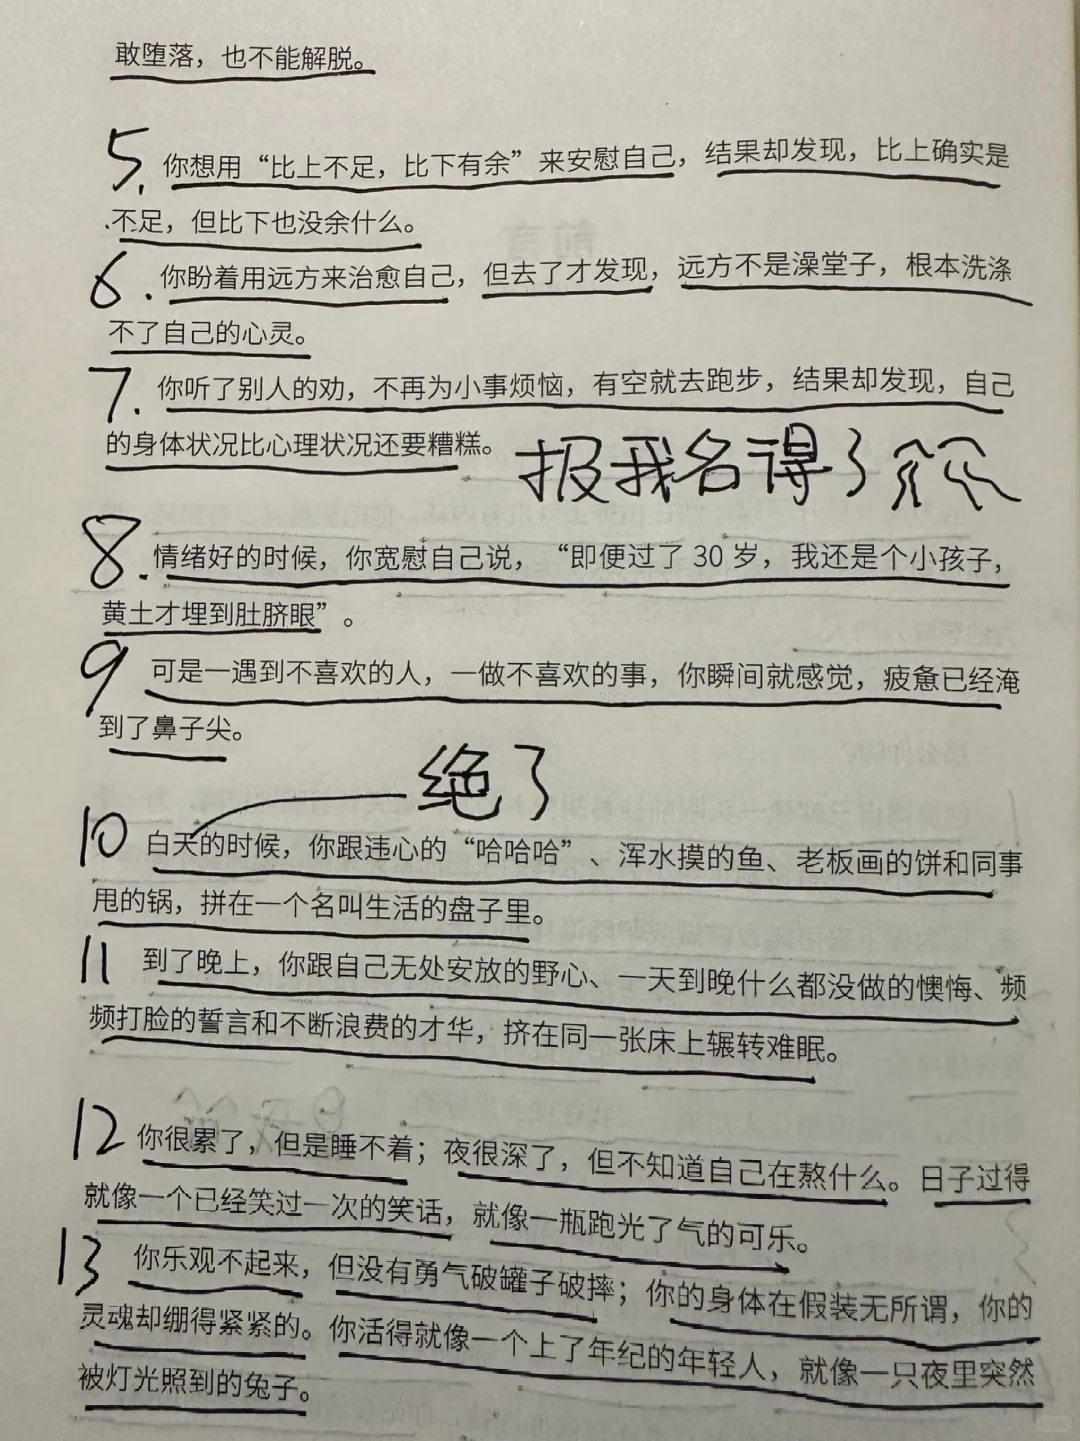 敢堕落，也不能解脱。
5. 你想用“比上不足，比下有余”来安慰自己，结果却发现，比上确实是
不足，但比下也没余什么。
6. 你盼着用远方来治愈自己，但去了才发现，远方不是澡堂子，根本洗涤
不了自己的心灵。
7. 你听了别人的劝，不再为小事烦恼，有空就去跑步，结果却发现，自己
的身体状况比心理状况还要糟糕。
报我名得了
8. 情绪好的时候，你宽慰自己说，“即便过了 30 岁，我还是个小孩子，
黄土才埋到肚脐眼”。
9 可是一遇到不喜欢的人，一做不喜欢的事，你瞬间就感觉，疲惫已经淹
到了鼻子尖。
绝了
10 白天的时候，你跟违心的“哈哈哈”、浑水摸的鱼、老板画的饼和同事
甩的锅，拼在一个名叫生活的盘子里。
11 到了晚上，你跟自己无处安放的野心、一天到晚什么都没做的懊悔、频
频打脸的誓言和不断浪费的才华，挤在同一张床上辗转难眠。
12 你很累了，但是睡不着；夜很深了，但不知道自己在熬什么。日子过得
就像一个已经笑过一次的笑话，就像一瓶跑光了气的可乐。
13 你乐观不起来，但没有勇气破罐子破摔；你的身体在假装无所谓，你的
灵魂却绷得紧紧的。你活得就像一个上了年纪的年轻人，就像一只夜里突然
被灯光照到的兔子。